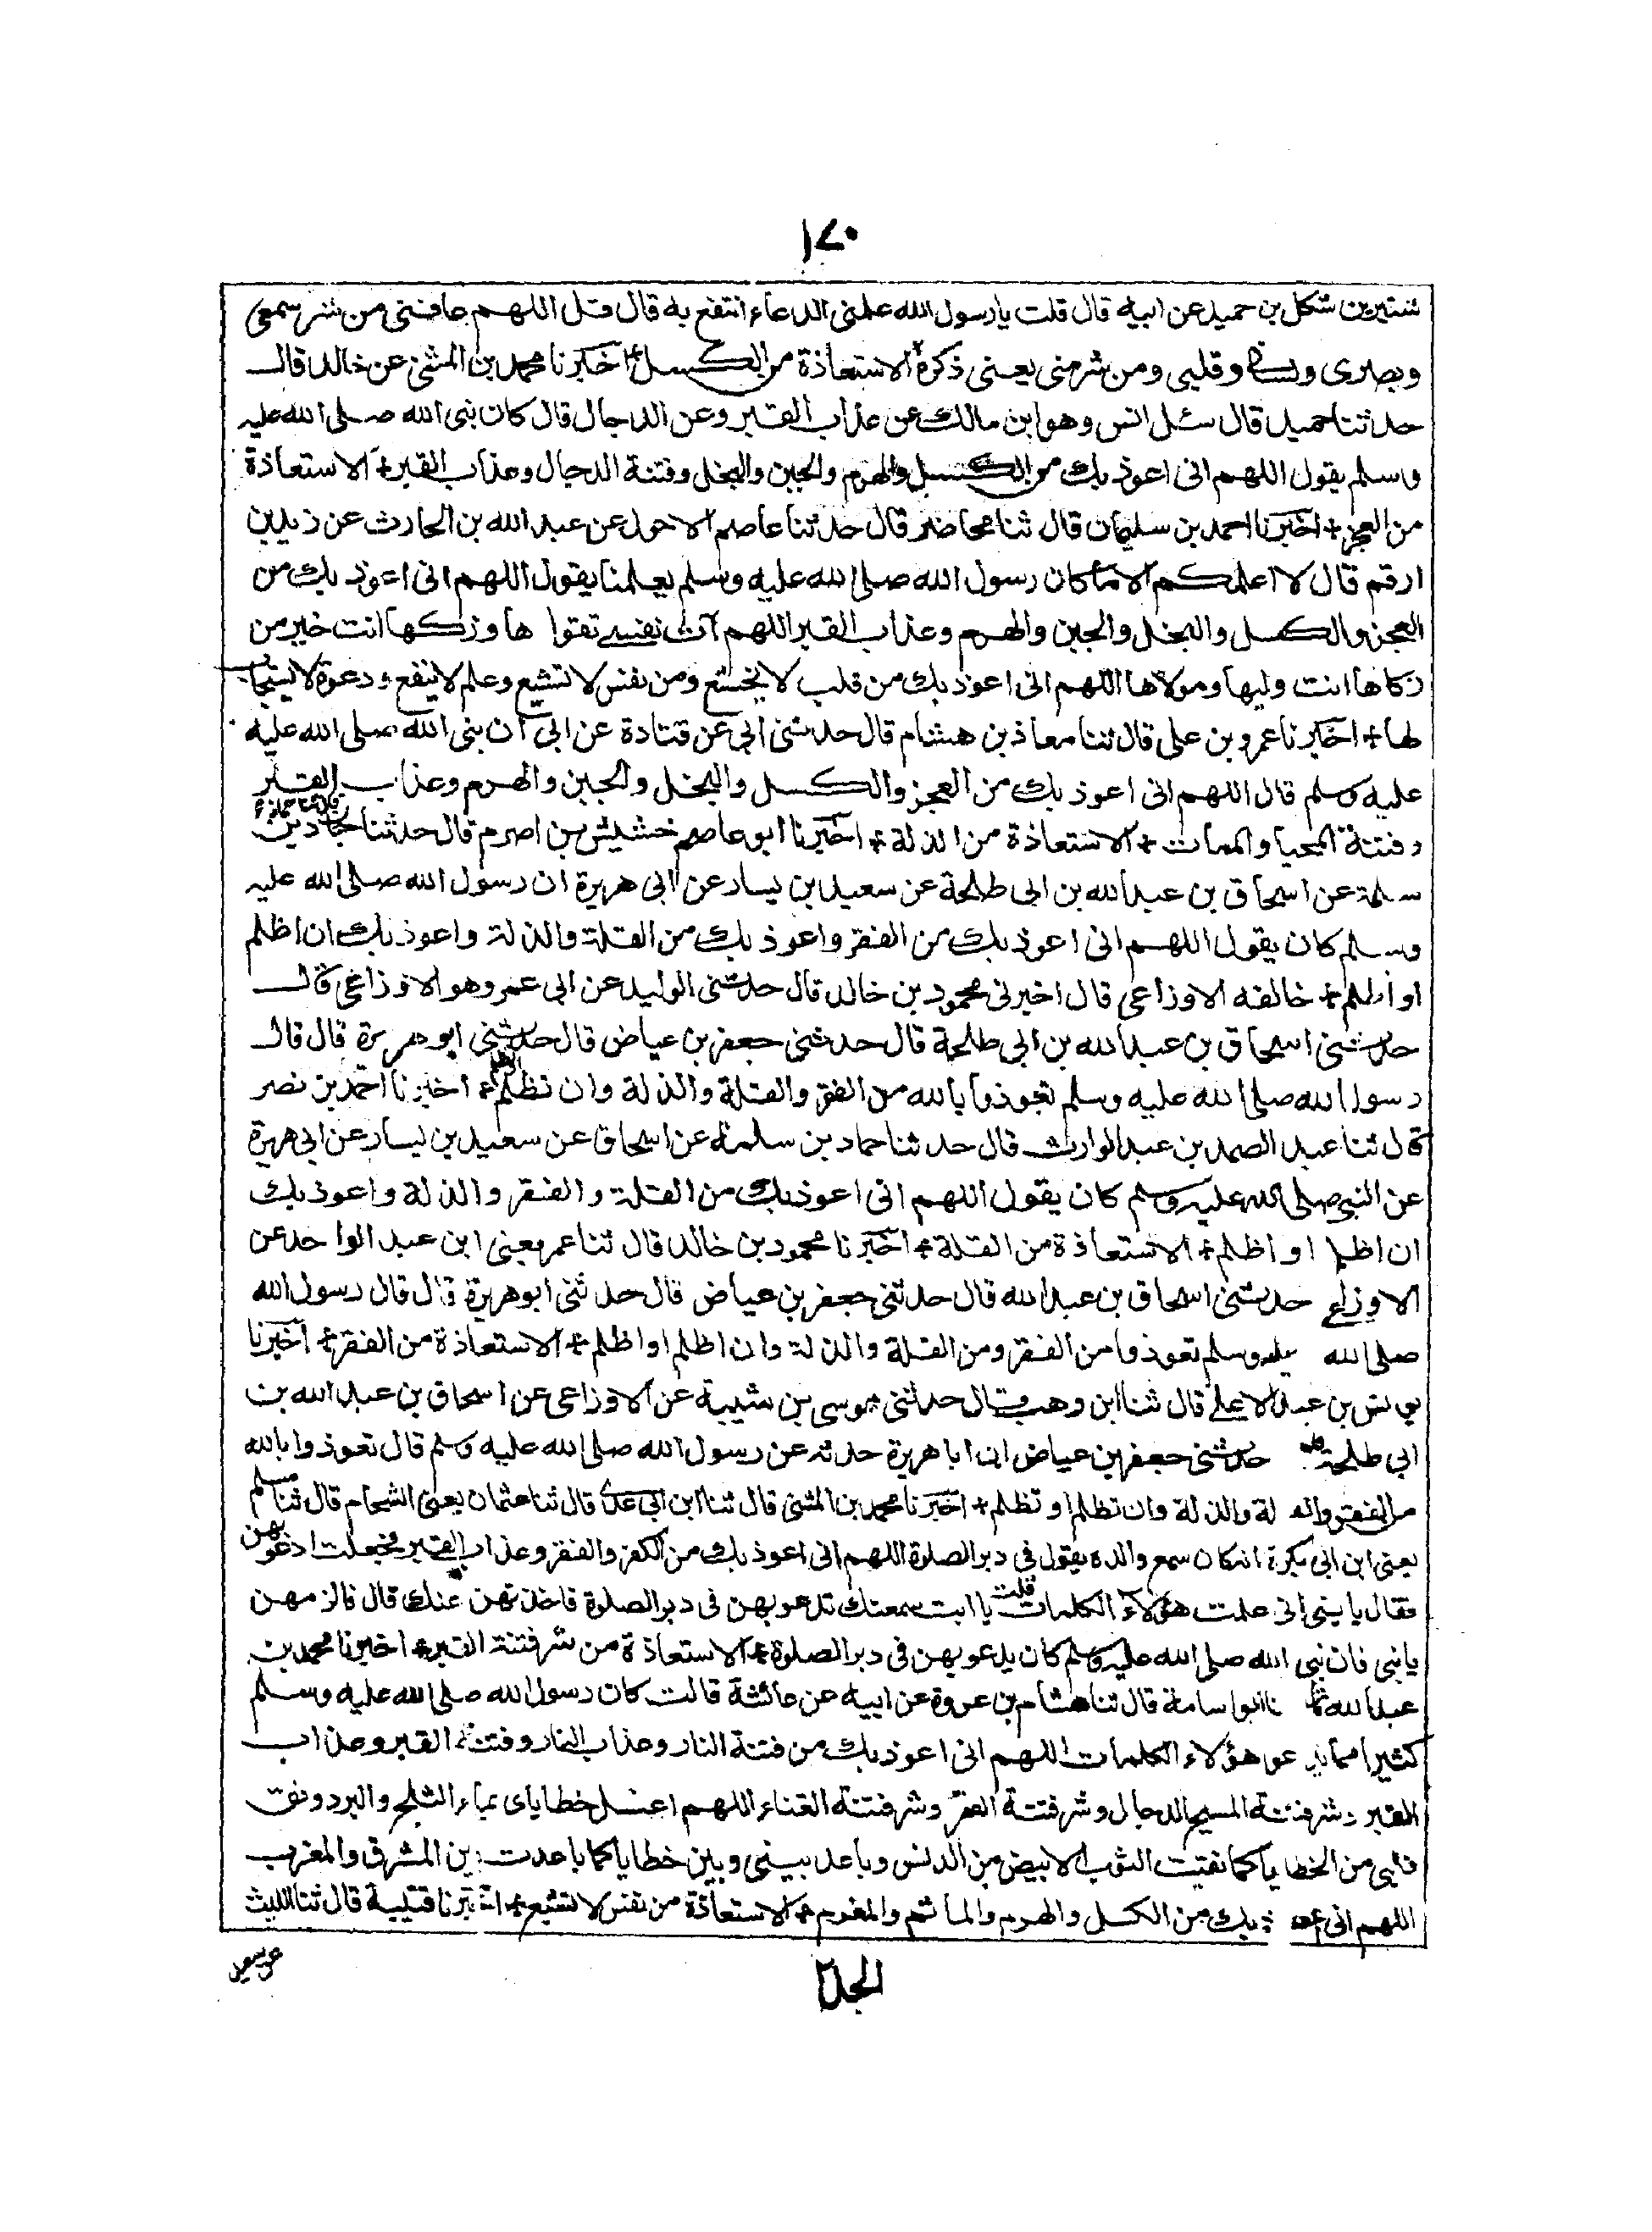 ١٧٠
شتيربن شكل بن حميد عن ابيه قال قلت يارسول الله علمنى الدعاء انتفع به قال قل اللهم عافنى من شر سمعى
وبصرى ولسانى وقلبى ومن شر منى يعنى ذكره الاستعاذة من الكسل اخبرنا محمد بن المثنى عن خالد قال
حدثنا حميد قال سئل انس وهو ابن مالك عن عذاب القبر وعن الدجال قال كان نبى الله صلى الله عليه
وسلم يقول اللهم انى اعوذ بك من الكسل والهرم والجبن والبخل وفتنة الدجال وعذاب القبر + الاستعاذة
من العجز + اخبرنا احمد بن سليمان قال ثنا محاضر قال حدثنا عاصم الاحول عن عبد الله بن الحارث عن زيد بن
ارقم قال لا اعلمكم الا ما كان رسول الله صلى الله عليه وسلم يعلمنا يقول اللهم انى اعوذ بك من
العجز والكسل والبخل والجبن والهرم وعذاب القبر اللهم آت نفسى تقوا ها وزكها انت خير من
زكاها انت وليها ومولاها اللهم انى اعوذ بك من قلب لا يخشع ومن نفس لا تشبع وعلم لا ينفع ودعوة لا يستجاب
لها + اخبرنا عمرو بن على قال ثنا معاذ بن هشام قال حدثنى ابى عن قتادة عن ابى ان نبى الله صلى الله عليه
عليه وسلم قال اللهم انى اعوذ بك من العجز والكسل والبخل والجبن والهرم وعذاب القبر
وفتنة المحيا والممات + الاستعاذة من الذلة + اخبرنا ابو عاصم خشيش بن اصرم قال حدثنا حماد بن
سلمة عن اسحاق بن عبد الله بن ابى طلحة عن سعيد بن يسار عن ابى هريرة ان رسول الله صلى الله عليه
وسلم كان يقول اللهم انى اعوذ بك من الفقر واعوذ بك من القلة والذلة واعوذ بك ان اظلم
او اظلم + خالفه الاوزاعى قال اخبرنى محمود بن خالد قال حدثنى الوليد عن ابى عمرو هو الاوزاعى قال
حدثنى اسحاق بن عبد الله بن ابى طلحة قال حدثنى جعفر بن عياض قال حدثنى ابو هريرة قال قال
رسول الله صلى الله عليه وسلم تعوذوا بالله من الفقر والقلة والذلة وان تظلم + اخبرنا احمد بن نصر
قال ثنا عبد الصمد بن عبد الوارث قال حدثنا حماد بن سلمة عن اسحاق عن سعيد بن يسار عن ابى هريرة
عن النبى صلى الله عليه وسلم كان يقول اللهم انى اعوذ بك من القلة والفقر والذلة واعوذ بك
ان اظلم او اظلم + الاستعاذة من القلة + اخبرنا محمود بن خالد قال ثنا عمر يعنى ابن عبد الواحد عن
الاوزاعى حدثنى اسحاق بن عبد الله قال حدثنى جعفر بن عياض قال حدثنى ابو هريرة قال قال رسول الله
صلى الله عليه وسلم تعوذوا من الفقر ومن القلة والذلة وان اظلم او اظلم + الاستعاذة من الفقر + اخبرنا
يونس بن عبد الاعلى قال ثنا ابن وهب وقال حدثنى موسى بن شيبة عن الاوزاعى عن اسحاق بن عبد الله بن
ابى طلحة حدثنى جعفر بن عياض ان ابا هريرة حدثه عن رسول الله صلى الله عليه وسلم قال تعوذوا بالله
من الفقر والقلة والذلة وان تظلم او تظلم + اخبرنا محمد بن المثنى قال ثنا ابن ابى عدى قال ثنا عثمان يعنى الشحام قال ثنا مسلم
يعنى ابن ابى بكرة انه كان سمع والده يقول فى دبر الصلوة اللهم انى اعوذ بك من الكفر والفقر وعذاب القبر فجعلت ادعو بهن
فقال يا بنى انى علمت هؤلاء الكلمات قلت يا ابت سمعتك تدعو بهن فى دبر الصلوة فاخذتهن عنك قال فالزمهن
يا بنى فان نبى الله صلى الله عليه وسلم كان يدعو بهن فى دبر الصلوة + الاستعاذة من شر فتنة القبر + اخبرنا محمد بن
عبد الله ثنا ابو اسامة قال ثنا هشام بن عروة عن ابيه عن عائشة قالت كان رسول الله صلى الله عليه وسلم
كثيرا مما يدعو هؤلاء الكلمات اللهم انى اعوذ بك من فتنة النار وعذاب النار وفتنة القبر وعذاب
القبر وشر فتنة المسيح الدجال وشر فتنة الفقر وشر فتنة الغناء اللهم اغسل خطاياى بماء الثلج والبرد ونق
قلبى من الخطايا كما نقيت الثوب الابيض من الدنس وباعد بينى وبين خطاياى كما باعدت بين المشرق والمغرب
اللهم انى اعوذ بك من الكسل والهرم والمأثم والمغرم + الاستعاذة من نفس لا تشبع + اخبرنا قتيبة قال ثنا الليث